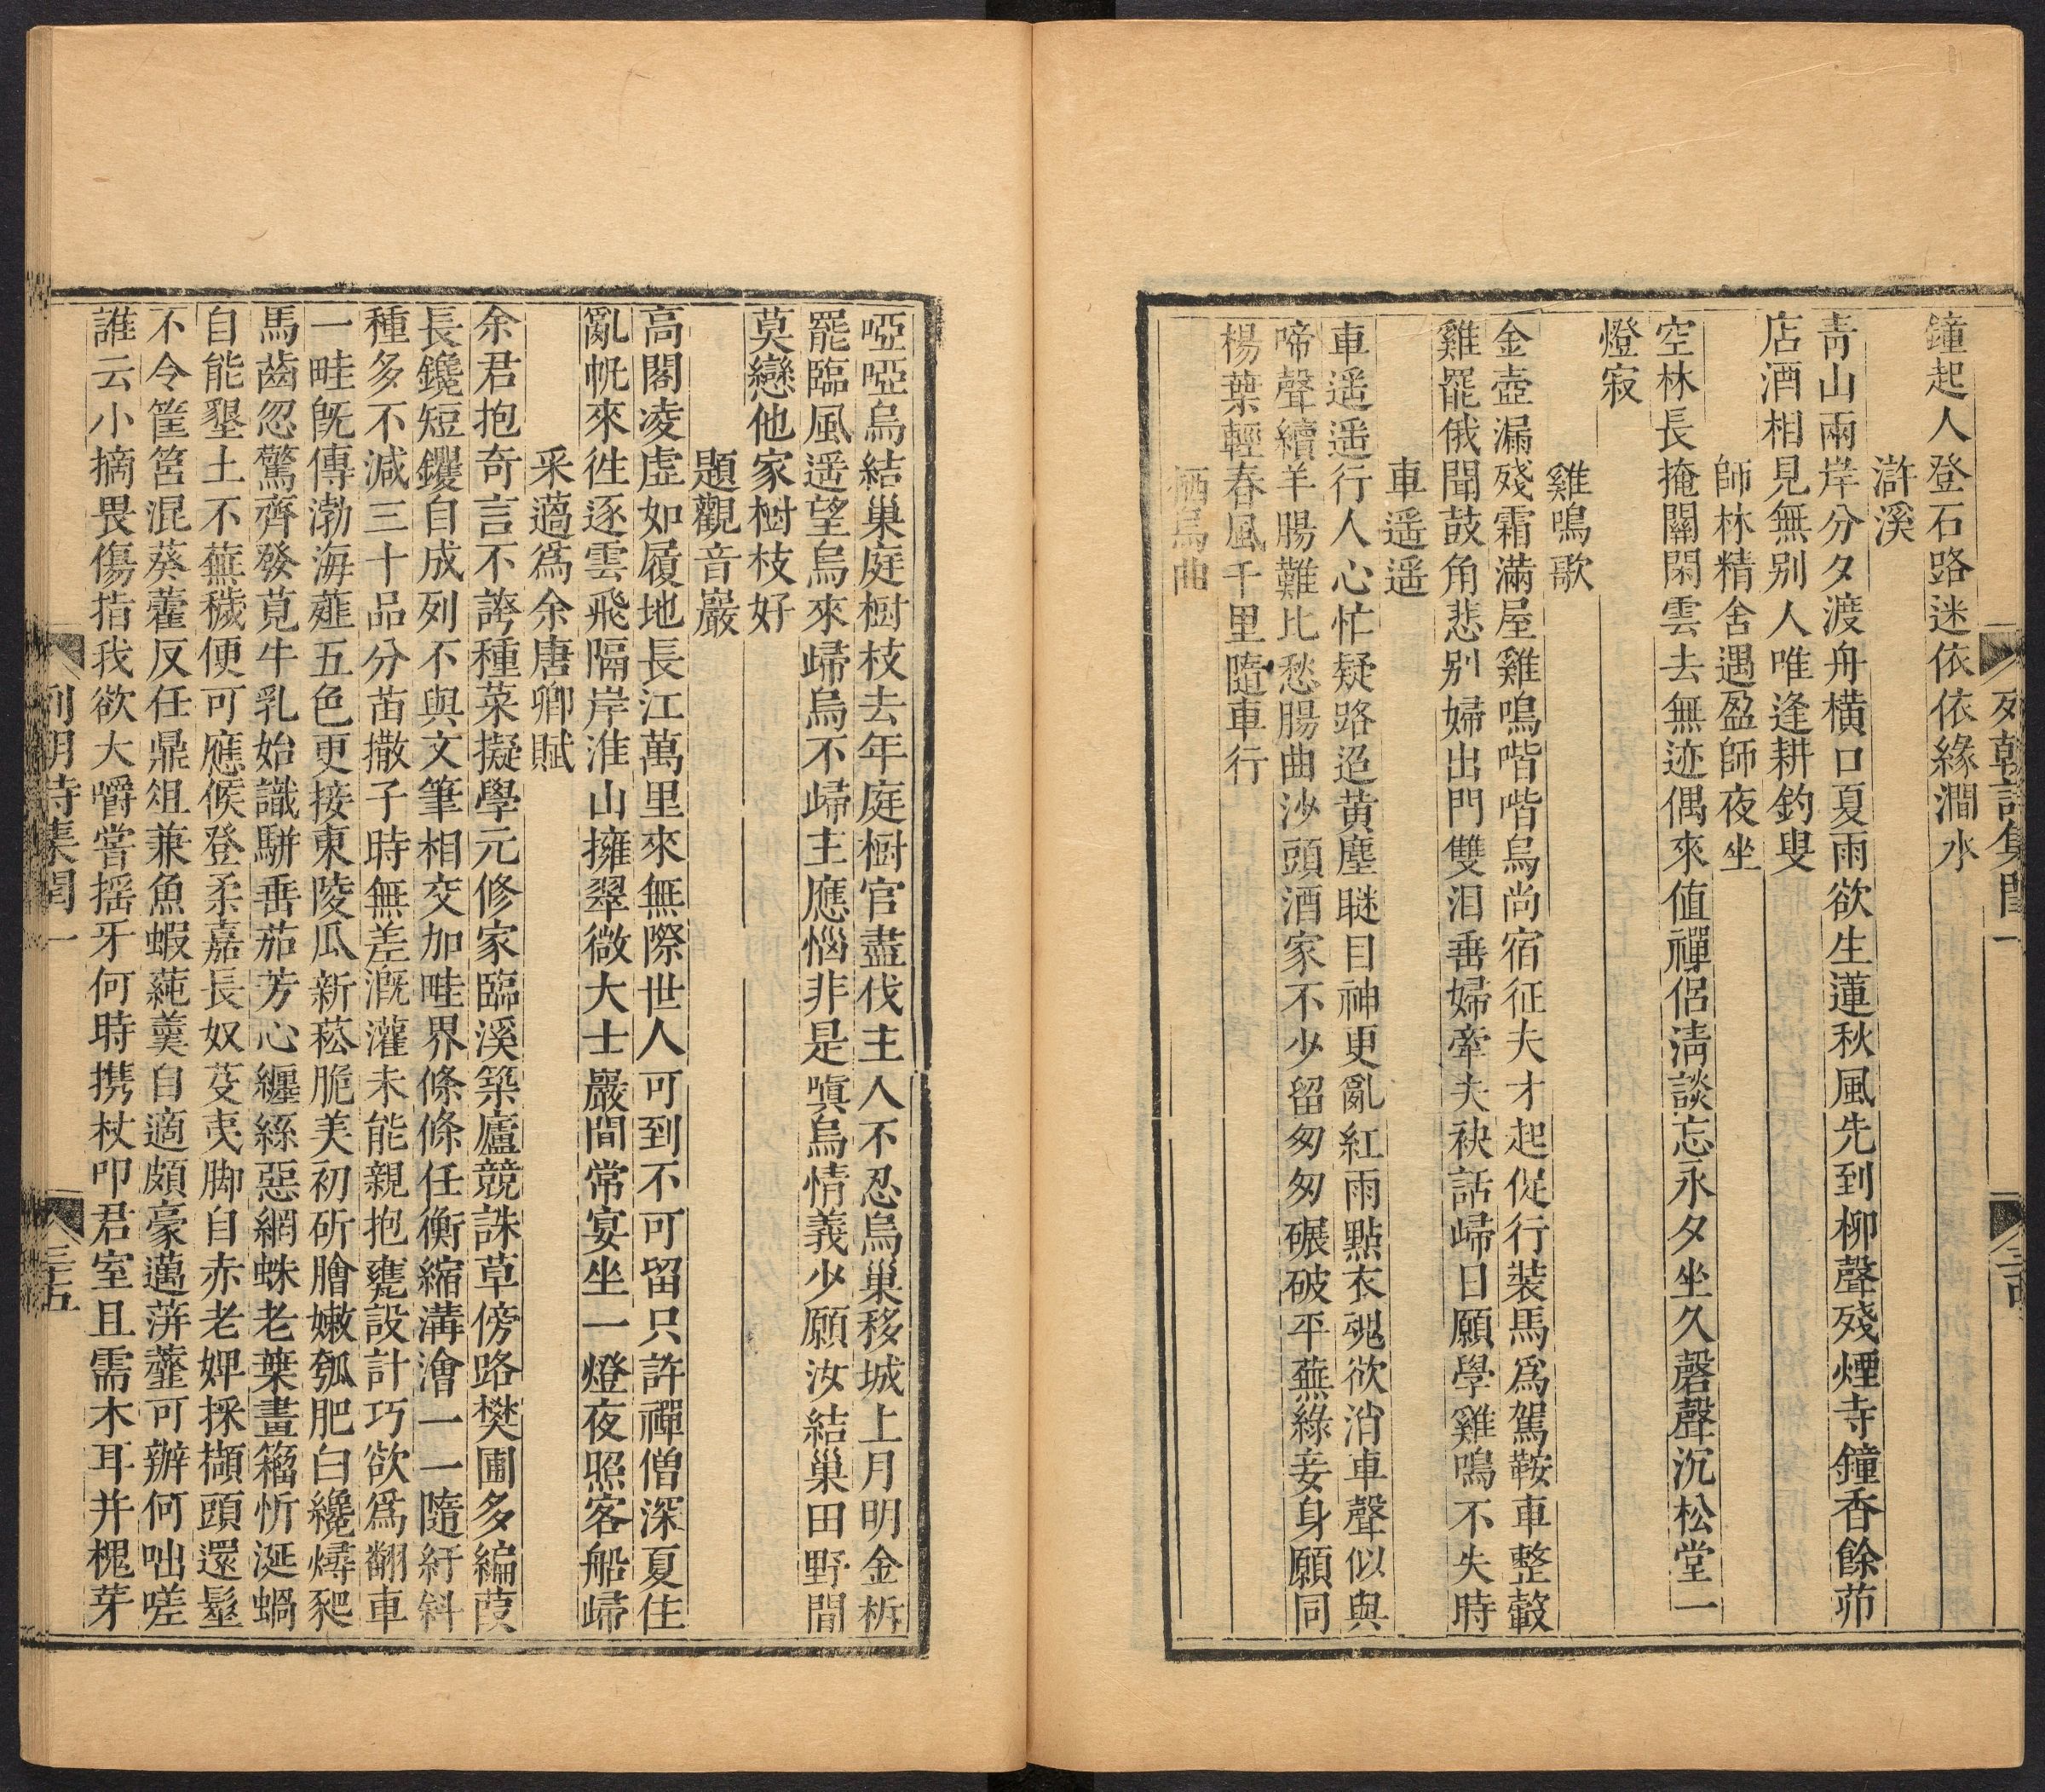 列朝詩集閏一
鐘起人登石路迷依依緣澗水
滸溪
靑山兩岸分夕渡舟横口夏雨欲生蓮秋風先到柳聲殘煙寺鐘香餘茆
店酒相見無别人唯逢耕釣叟
師林精舍遇盈師夜坐
空林長掩關閑雲去無迹偶來值禪侶淸談忘永夕坐久磬聲沉松堂一
燈寂
雞鳴歌
金壺漏殘霜滿屋雞鳴喈喈烏尚宿征夫才起促行裝馬爲駕鞍車整轂
雞罷俄聞鼓角悲别婦出門雙泪垂婦牽夫袂話歸日願學雞鳴不失時
車遥遥
車遥遥行人心忙疑路迢黄塵瞇目神更亂紅雨點衣䰟欲消車聲似與
啼聲續羊腸難比愁腸曲沙頭酒家不少留匆匆碾破平蕪綠妾身願同
楊葉輕春風千里隨車行
栖烏曲
啞啞烏結巢庭樹枝去年庭樹官盡伐主人不忍烏巢移城上月明金柝
罷臨風遥望烏來歸烏不歸主應惱非是嗔烏情義少願汝結巢田野間
莫戀他家樹枝好
題觀音巖
高閣凌虚如履地長江萬里來無際世人可到不可留只許禪僧深夏住
亂帆來徃逐雲飛隔岸淮山擁翠微大士巖間常宴坐一燈夜照客船歸
采薖爲余唐卿賦
余君抱奇言不誇種菜擬學元修家臨溪築廬競誅草傍路樊圃多編葭
長鑱短钁自成列不與文筆相交加畦界條條任衡縮溝澮一一隨紆斜
種多不減三十品分苗撒子時無差溉灌未能親抱甕設計巧欲爲翻車
一畦旣傳渤海薤五色更接東陵瓜新菘脆美初斫膾嫩瓠肥白纔燖豝
馬齒忽驚齊發莧牛乳始識駢垂茄芳心纏絲惡網蛛老葉畫籀忻涎蝸
自能墾土不蕪穢便可應候登柔嘉長奴芟夷脚自赤老婢採擷頭還髽
不令筐筥混葵藿反任鼎俎兼魚蝦蒓羹自適頗豪邁蓱虀可辦何咄嗟
誰云小摘畏傷指我欲大嚼嘗揺牙何時携杖叩君室且需木耳并槐芽
列朝詩集閏一
三五